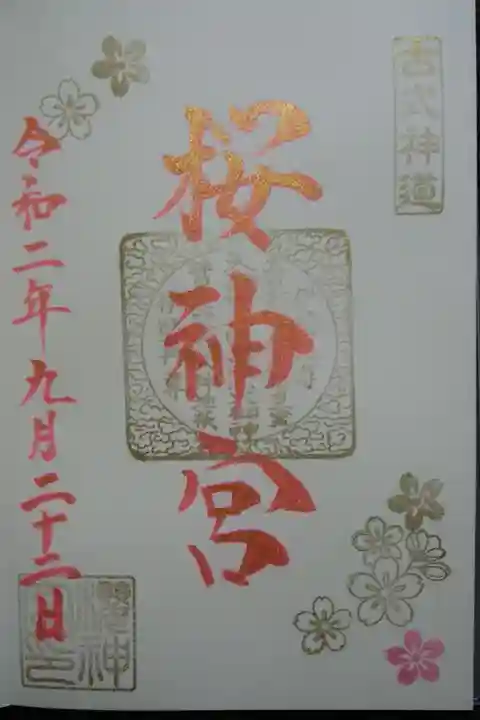 古式神道
桜神宮
令和二年九月二十二日